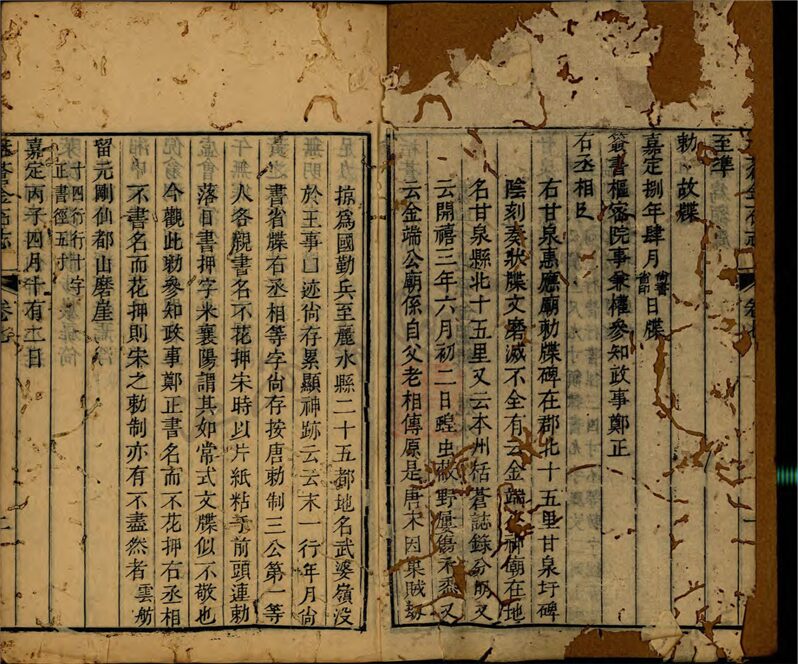 至準
勅 故牒
嘉定捌年肆月 日牒
簽書樞密院事兼權參知政事鄭正
右丞相
右甘泉惠應廟勅牒碑在郡北十五里甘泉圩碑
陰刻奏狀牒文磨滅不全有云金端公神廟在地
名甘泉縣北十五里又云本州括蒼誌錄分明又
云開禧三年六月初二日蝗虫蔽野屢傷禾黍又
云金端公廟係自父老相傳原是唐末因巢賊刼
掠爲國勤兵至麗水縣二十五都地名武婆嶺没
於王事囗迹尙存累顯神跡云云末一行年月尙
書省牒右丞相等字尙存按唐勅制三公第一等
人各親書名不花押宋時以片紙粘于前頭連勅
落日書押字米襄陽謂其如常式文牒似不敬也
今觀此勅參知政事鄭正書名而不花押右丞相
不書名而花押則宋之勅制亦有不盡然者 雲舫
留元剛仙都山磨崖
十四行行十字
正書徑五寸
嘉定丙子四月千有二日
卷七